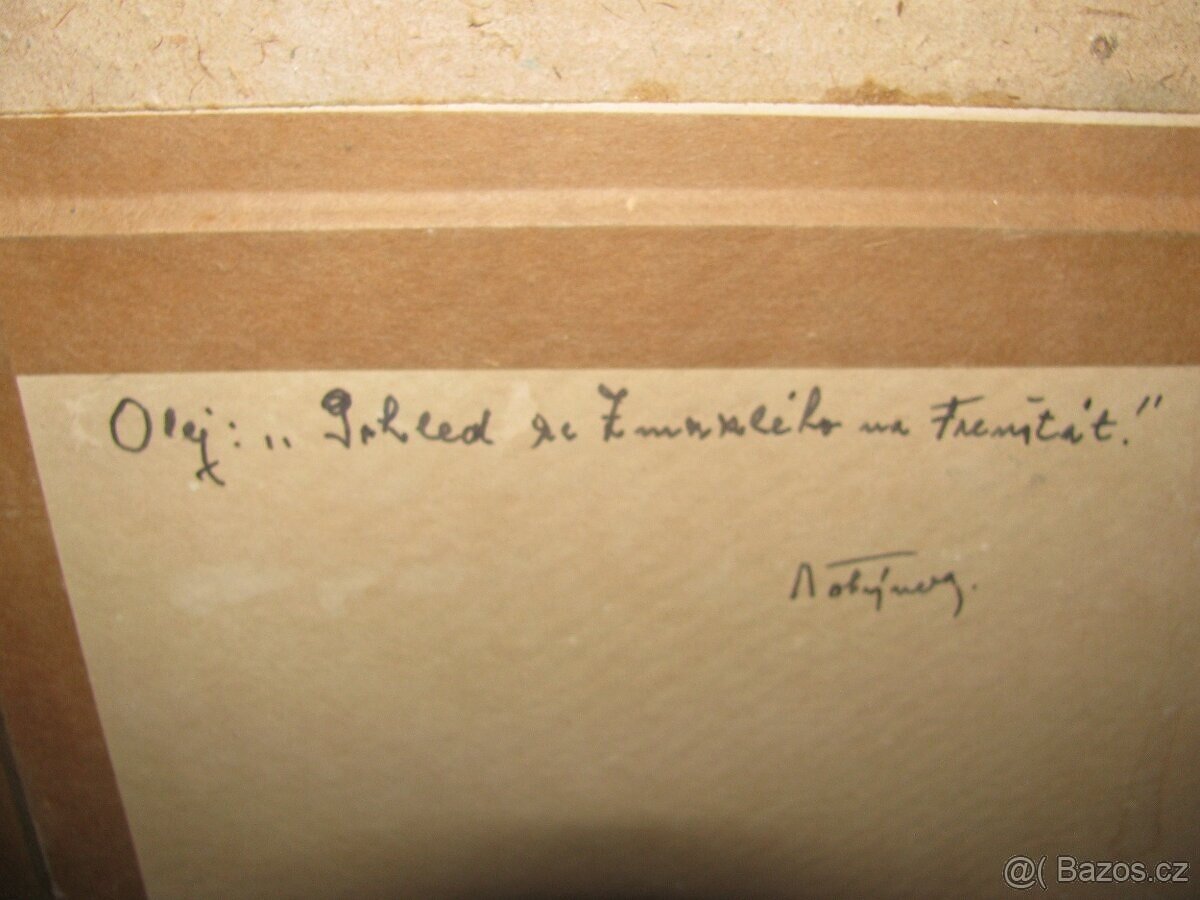 Olej: „ Pohled ze Zmrzlého na Frenštát."
@( Bazos.cz